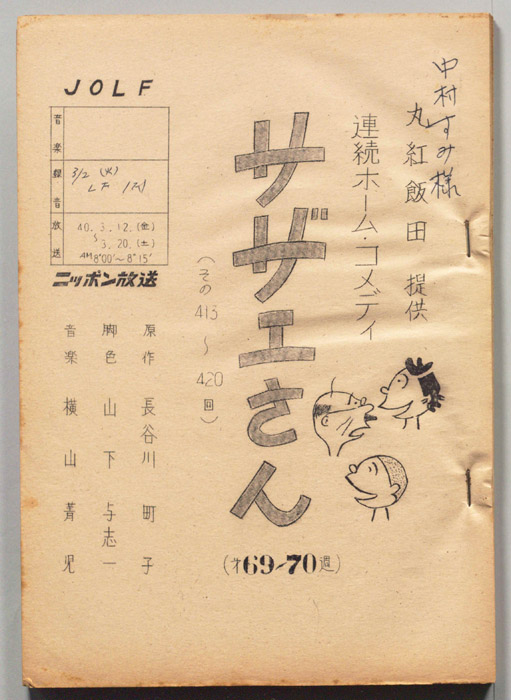 中村すみ様
丸紅飯田 提供
連続ホーム・コメディ
サザエさん
(その413〜420回)
(才69-70週)
JOLF
音楽
録音 3/2 (火)
放送 40.3.12.(金)
〜3.20.(土)
AM8°00'〜8°15'
ニッポン放送
原作 長谷川町子
脚色 山下与志一
音楽 横山菁児